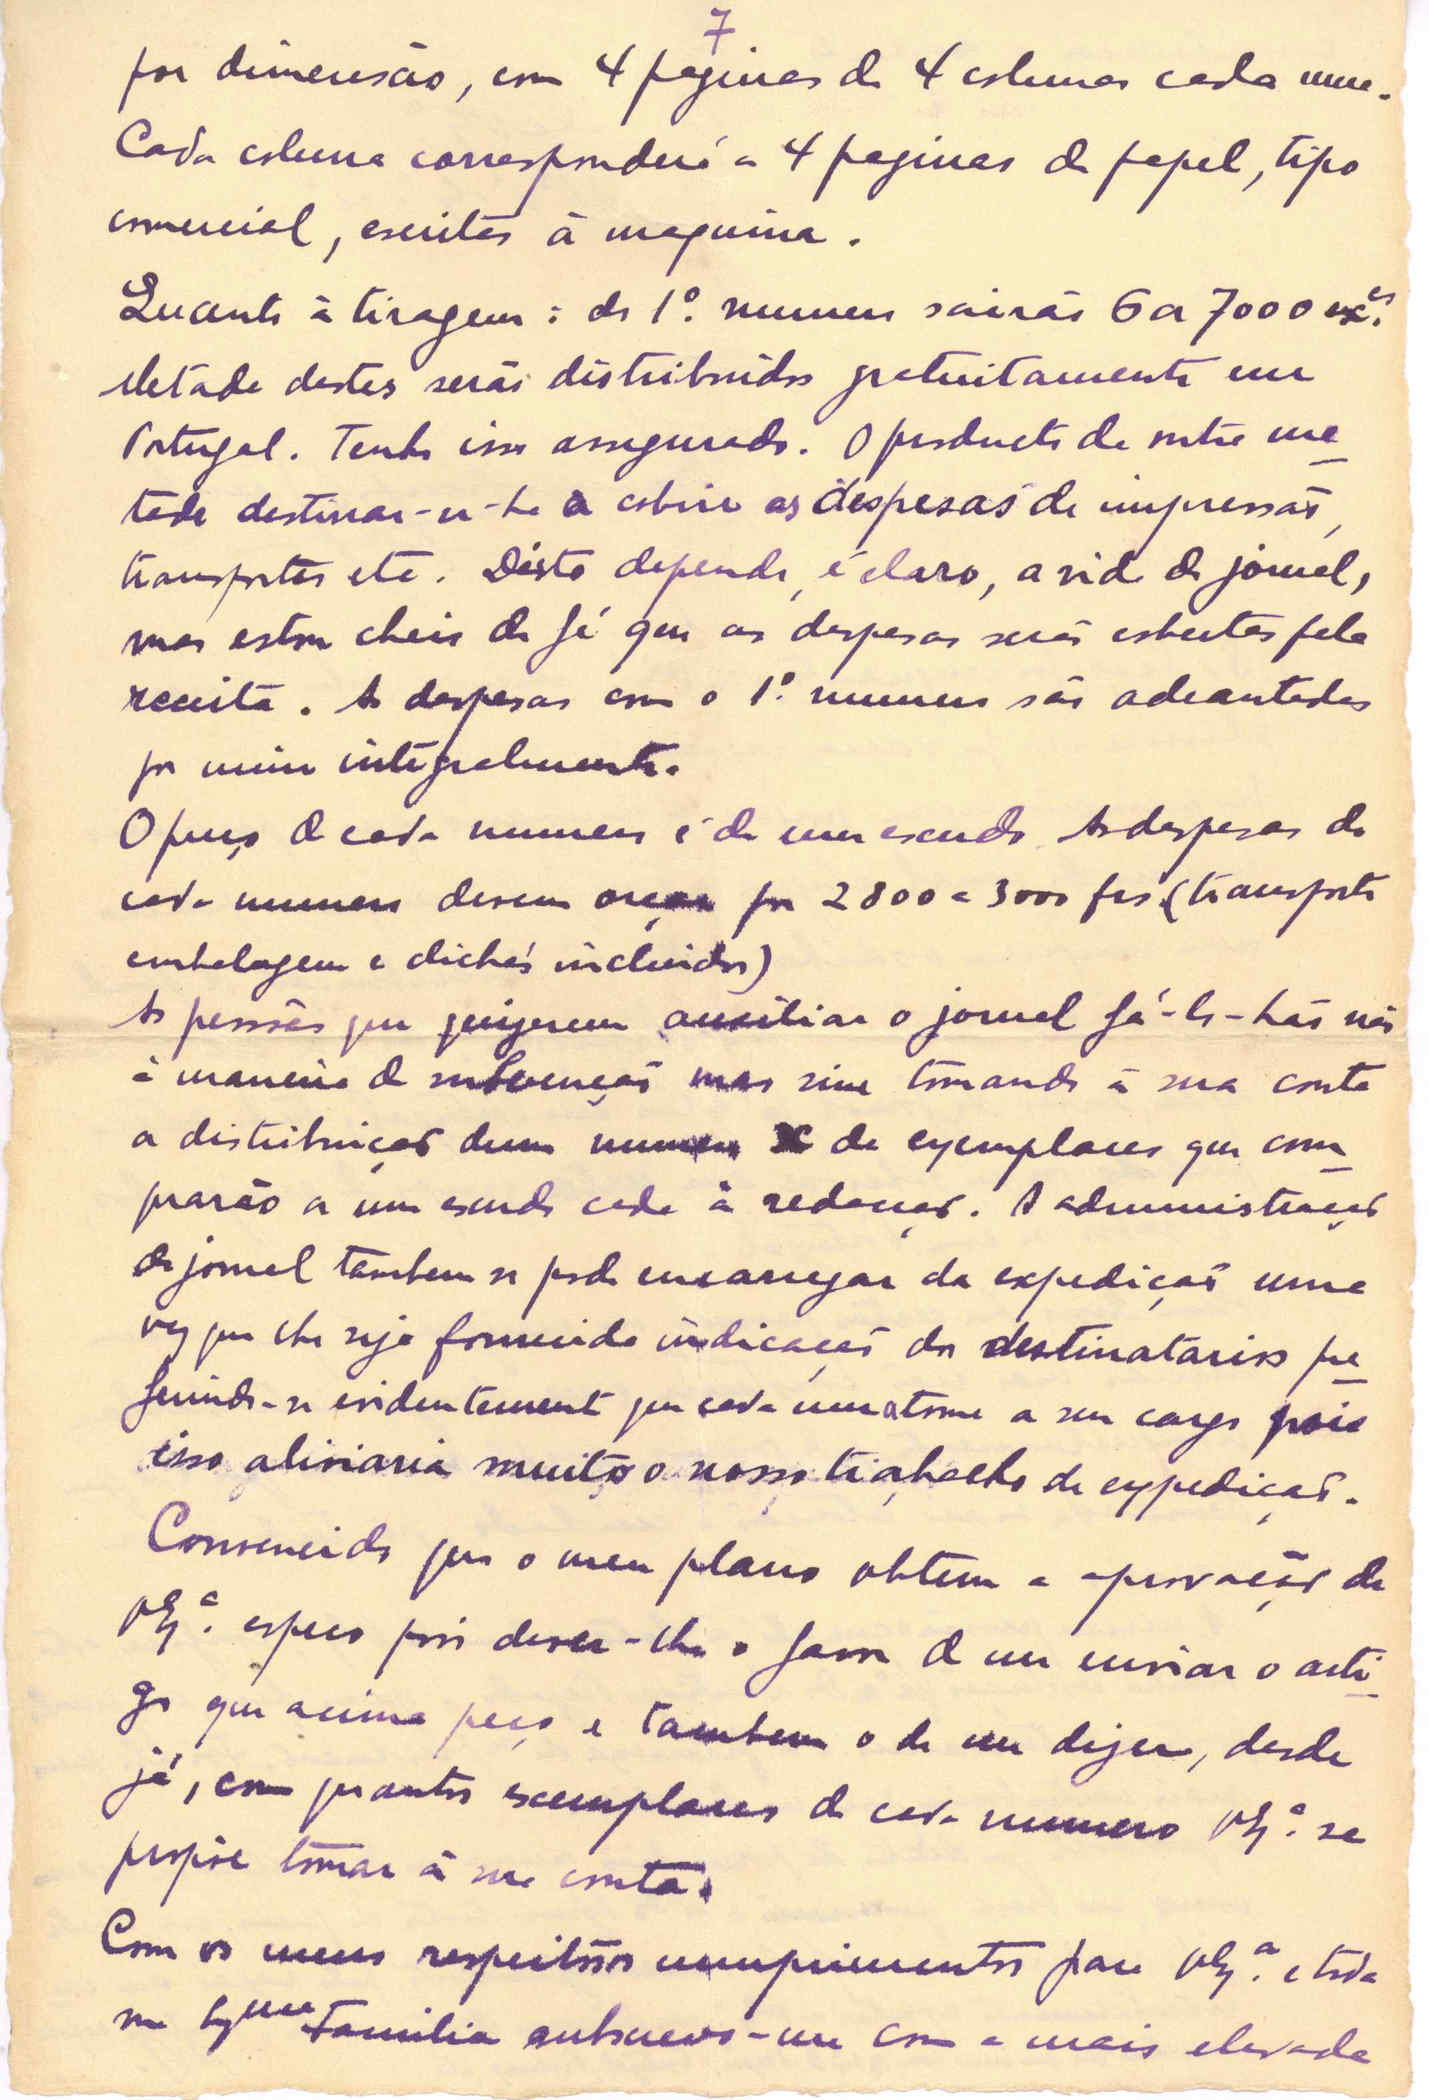 7
por dimensão, com 4 paginas de 4 colunas cada uma.
Cada coluna corresponderá a 4 paginas de papel, tipo
comercial, escritas à maquina.
Quanto à tiragem: do 1º. numero sairão 6 a 7000 exes.
Metade destes serão distribuidos gratuitamente em
Portugal. Tenho isso assegurado. O producto da outra me-
tade destinar-se-ha a cobrir as despesas de impressão,
transportes etc. Disto depende, é claro, a vida do jornal,
mas estou cheio de fé que as despesas serão cobertas pela
receita. As despesas com o 1º. numero são adeantadas
por mim integralmente.
O preço de cada numero é de um escudo. As despesas de
cada numero devem orçar por 2800 a 3000 frs. (transporte
embalagem e clichés incluidos)
As pessoas que quizerem auxiliar o jornal fá-lo-hão não
à maneira de subvenção mas sim tomando à sua conta
a distribuição dum numero X de exemplares que com-
prarão a um escudo cada à redacção. A administração
do jornal tambem se pode encarregar da expedição uma
vez que lhe seja fornecida indicação dos destinatarios pre-
ferindo-se evidentemente que cada um a tome a seu cargo pois
isso aliviaria muito o nosso trabalho de expedição.
Convencido que o meu plano obtem a aprovação de
V Exª. espero pois dever-lhe o favor de me enviar o arti-
go que acima peço e tambem o de me dizer, desde
já, com quantos exemplares de cada numero V Exª. se
propõe tomar à sua conta.
Com os meus respeitosos cumprimentos para V Exª. e toda
sua Exma Familia subscrevo-me com a mais elevada